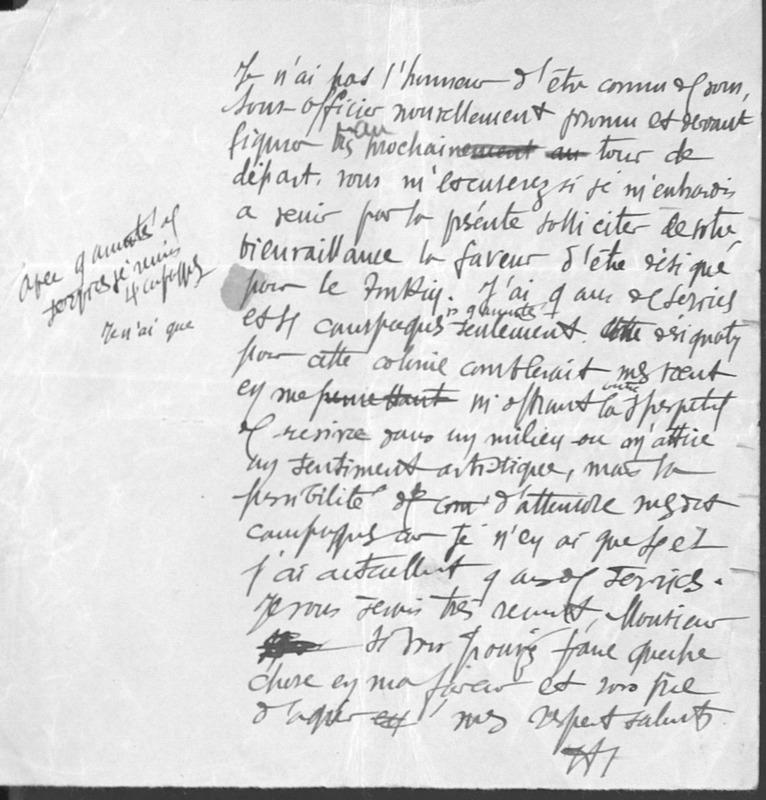 Je n'ai pas l'honneur d'être connu de vous,
Sous-officier nouvellement promu et devant
figurer très au prochainement au tour de
départ, vous m'excuserez si je m'enhardis
a venir par la présente solliciter de votre
bienveillance la faveur d'être désigné
pour le Tonkin. J'ai 9 ans de services
et 4 campagnes seulement. Cette désignation
pour cette colonie comblerait mes vœux
en me permettant m'offrant outre la perspective
de revivre dans un milieu ou m'attire
un sentiment artistique, mais la
possibilité de d'atteindre mes
campagnes car je n'en ai que 4 et
j'ai actuellement 9 ans de services.
Je vous serais très reconnt, Monsieur
si vous pouviez faire quelque
chose en ma faveur et vous prie
d'agréer mes respect saluts
avec 9 années de
services je
4 campagnes
Je n'ai que